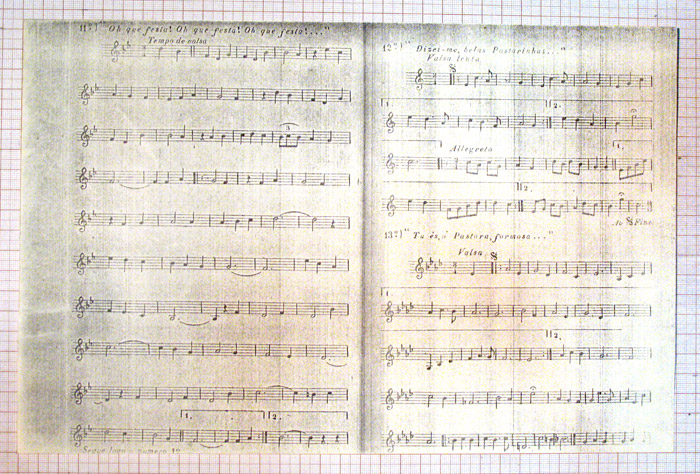 11º) "Oh que festa! Oh que festa! Oh que festa!..."
Tempo de valsa
3
1.
2.
Segue logo o numero 12
12º) "Dizei-me, belas Pastorinhas..."
Valsa lenta
1.
2.
Allegreto
1.
2.
Ao 𝄋 Fine
13º) "Tu és, ó Pastora, formosa..."
Valsa
1.
2.